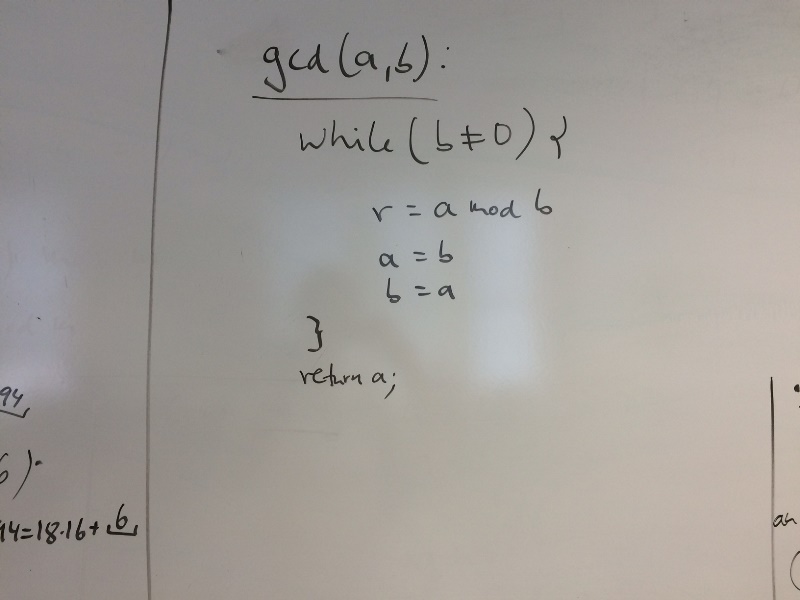 94
6).
94=18·16+6
gcd(a,b):
while(b≠0){
r = a mod b
a = b
b = a
}
return a;
an